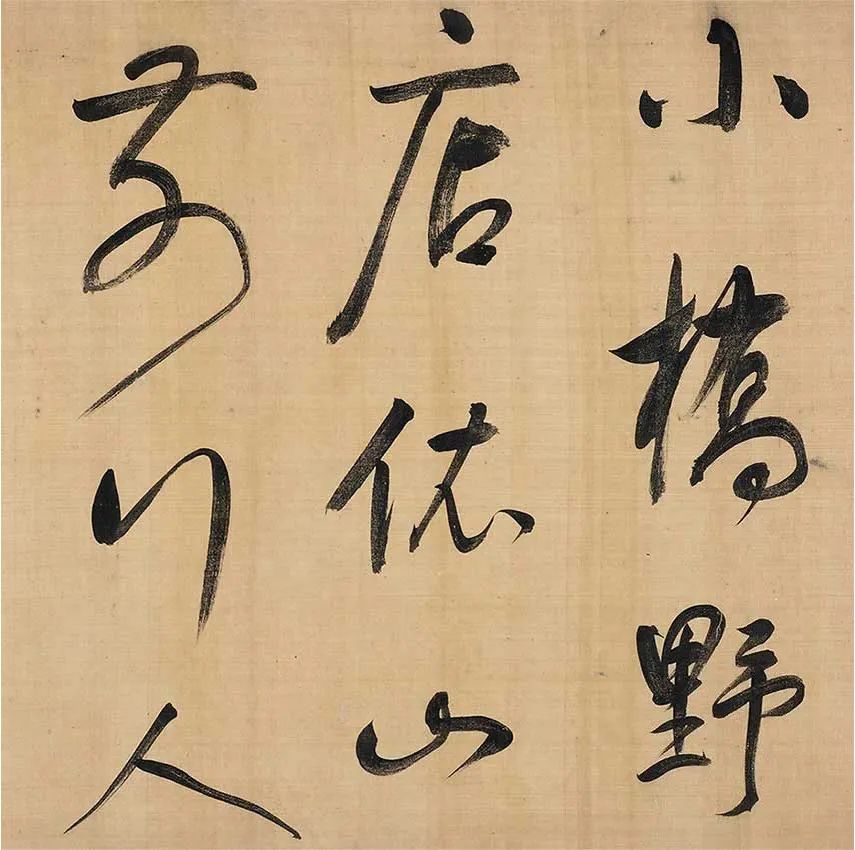 小橋野
店依山
前行人